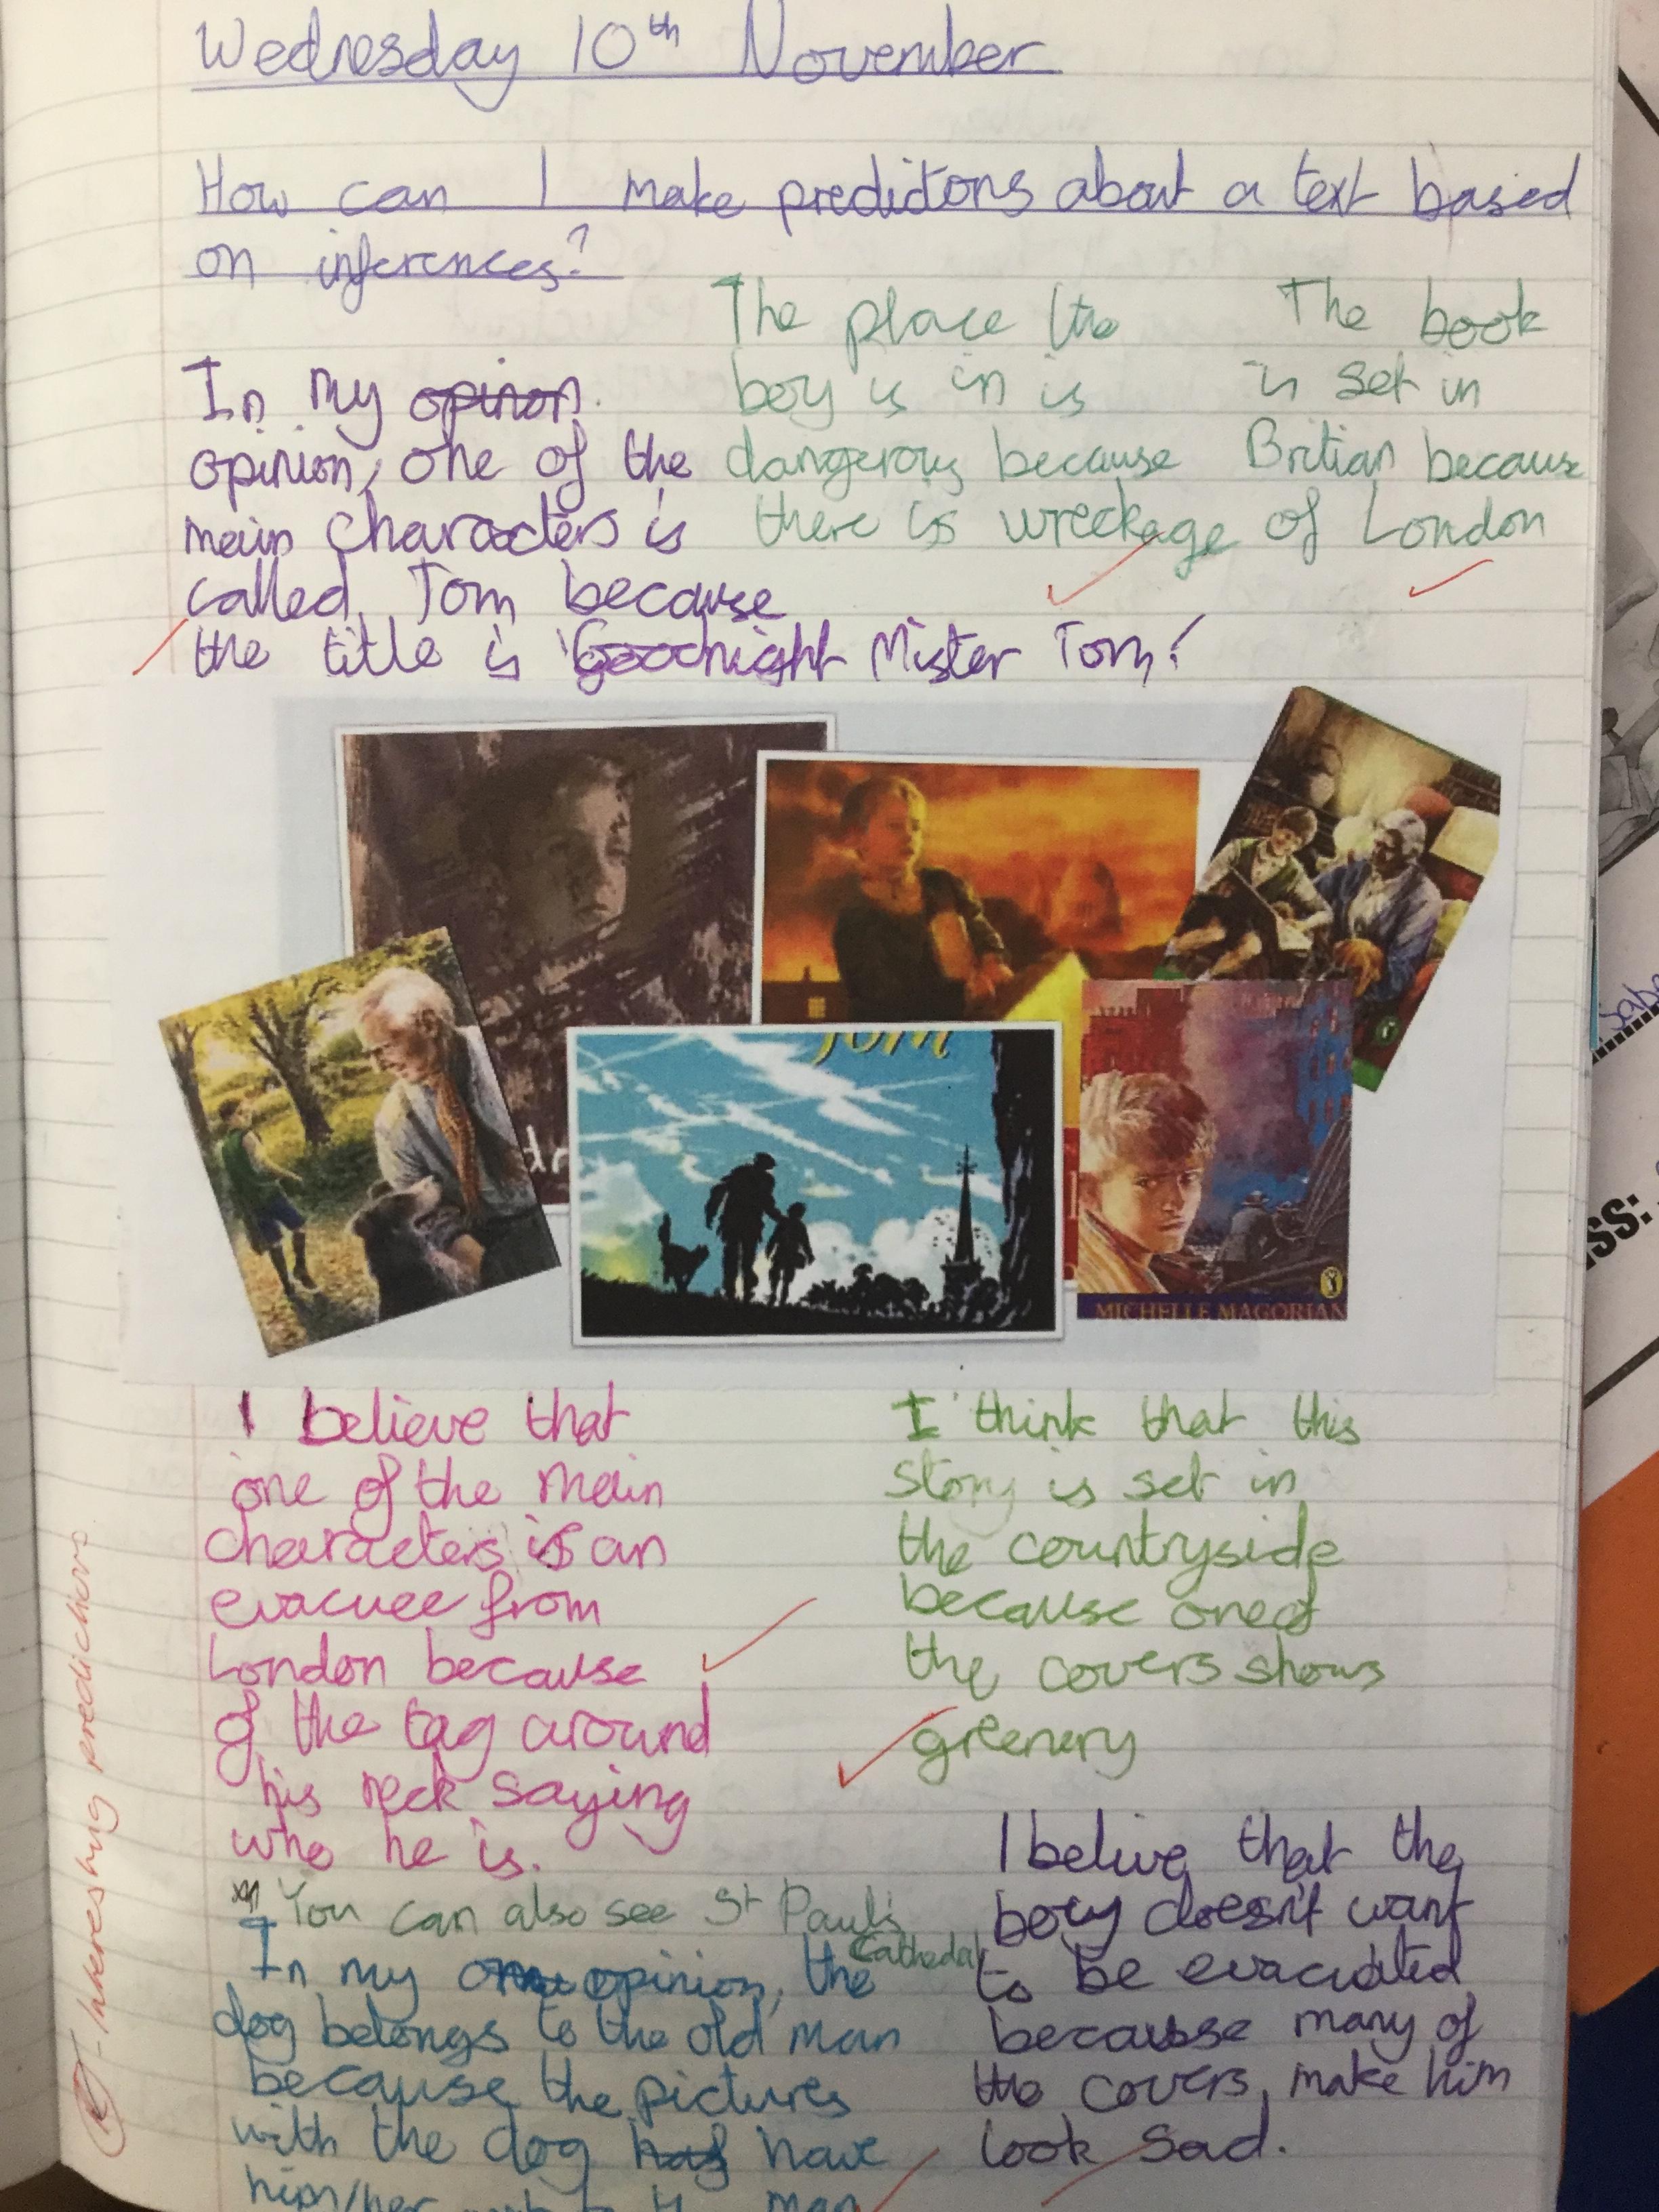 Wednesday 10th November
How can I make predictons about a text based
on inferences?
In my opinon
opinion, one of the
main characters is
called Tom because
the title is 'Goodnight Mister Tom!
The place the
boy is in is
dangerous because
there is wreckage
The book
is set in
Britian because
of London
Tom
MICHELLE MAGORIAN
I believe that
one of the main
characters is an
evacuee from
London because
of the tag around
his neck saying
who he is.
I think that this
story is set in
the countryside
because one of
the covers shows
greenery
You can also see St Paul's
Cathedal
In my opinion, the
dog belongs to the old man
because the pictures
with the dog have
him/her next to the man
I belive that the
boy doesn't want
to be evacuated
because many of
the covers, make him
look sad.
- Interesting predictions.
ss: